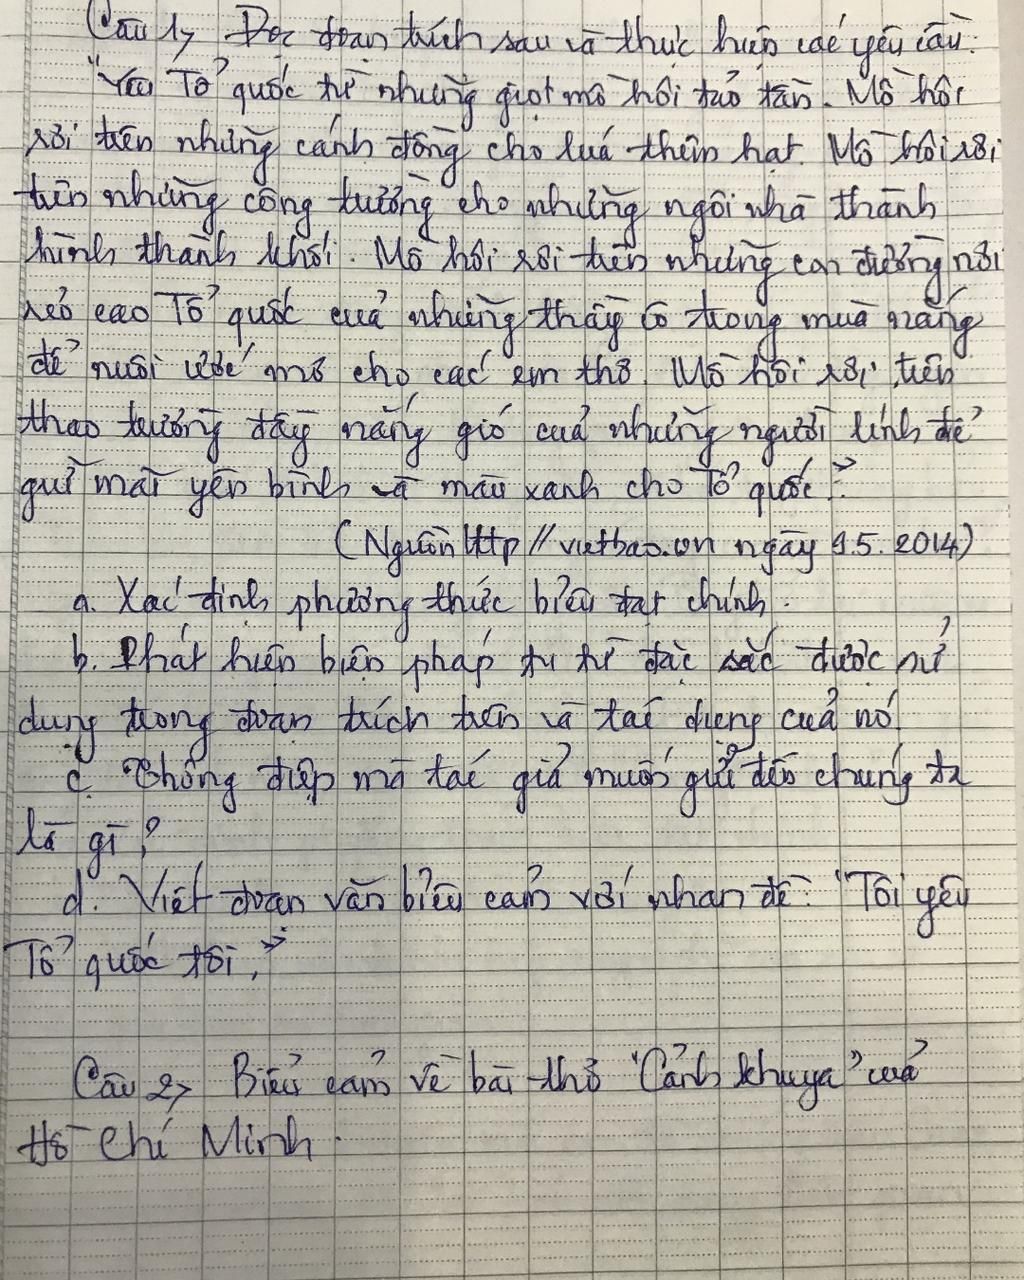 Câu 1, Đọc đoạn trích sau và thực hiện các yêu cầu:
"Yêu Tổ quốc từ những giọt mồ hôi tảo tần. Mồ hôi
rơi trên những cánh đồng cho luá thêm hạt. Mồ hôi rơi
trên những công trường cho những ngôi nhà thành
hình thành khối. Mồ hôi rơi trên những con đường nơi
rẻo cao Tổ quốc của những thầy cô trong mùa nắng
để nuôi ước mơ cho các em thơ. Mồ hôi rơi trên
thao trường đầy nắng gió của những người lính để
giữ mãi yên bình và màu xanh cho Tổ quốc".
(Nguồn http//vietbao.vn ngày 9.5.2014)
a. Xác định phương thức biểu đạt chính.
b. Phát hiện biện pháp tu từ đặc sắc được sử
dụng trong đoạn trích trên và tác dụng của nó
c. Thông điệp mà tác giả muốn gửi đến chúng ta
là gì?
d. Viết đoạn văn biểu cảm với nhan đề: "Tôi yêu
Tổ quốc tôi."
Câu 2, Biểu cảm về bài thơ "Cảnh khuya" của
Hồ Chí Minh.